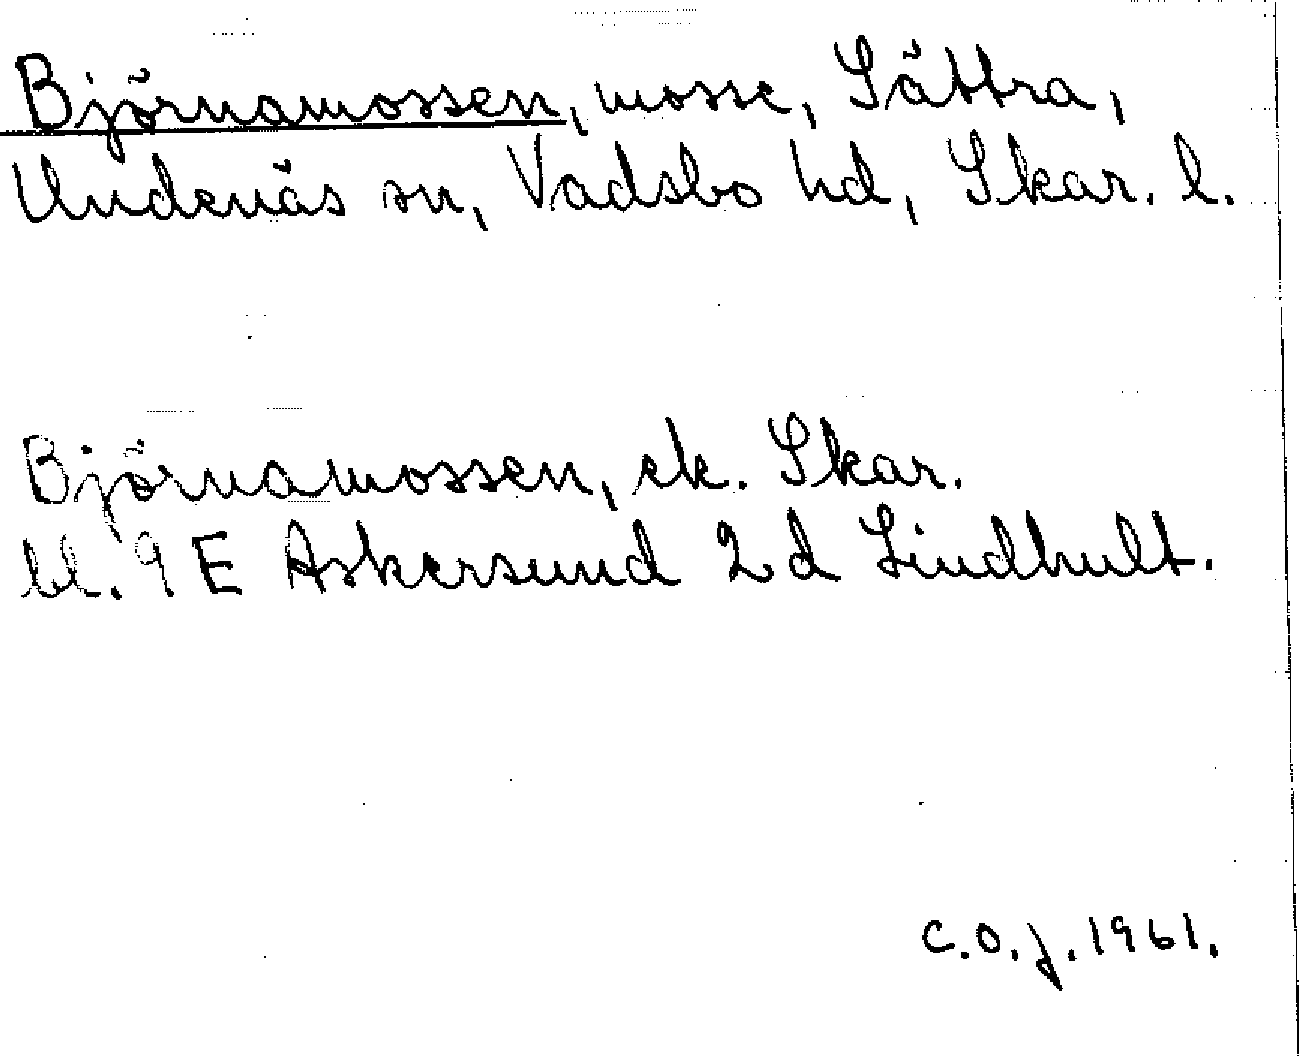 Björnamossen, mosse, Sättra,
Undenäs sn, Vadsbo hd, Skar. l.
Björnamossen, ek. Skar.
bl. 9 E Askersund 2 d Lindhult.
C.O.J. 1961.